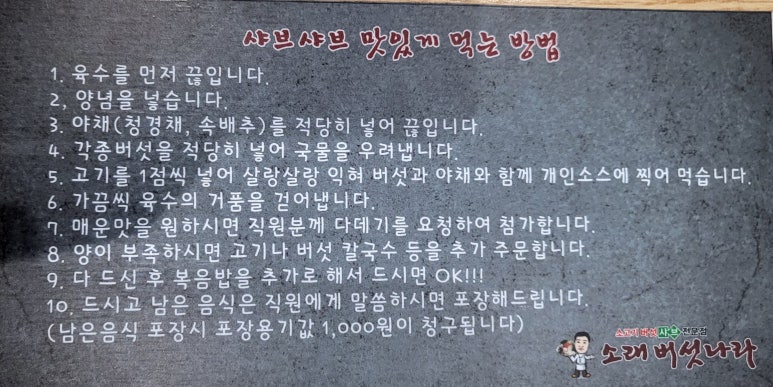 샤브샤브 맛있게 먹는 방법
1. 육수를 먼저 끓입니다.
2, 양념을 넣습니다.
3. 야채(청경채, 속배추)를 적당히 넣어 끓입니다.
4. 각종버섯을 적당히 넣어 국물을 우려냅니다.
5. 고기를 1점씩 넣어 살랑살랑 익혀 버섯과 야채와 함께 개인소스에 찍어 먹습니다.
6. 가끔씩 육수의 거품을 걷어냅니다.
7. 매운맛을 원하시면 직원분께 다데기를 요청하여 첨가합니다.
8. 양이 부족하시면 고기나 버섯 칼국수 등을 추가 주문합니다.
9. 다 드신 후 볶음밥을 추가로 해서 드시면 OK!!!
10. 드시고 남은 음식은 직원에게 말씀하시면 포장해드립니다.
(남은음식 포장시 포장용기값 1,000원이 청구됩니다)
소고기 버섯 샤브 전문점
소래버섯나라